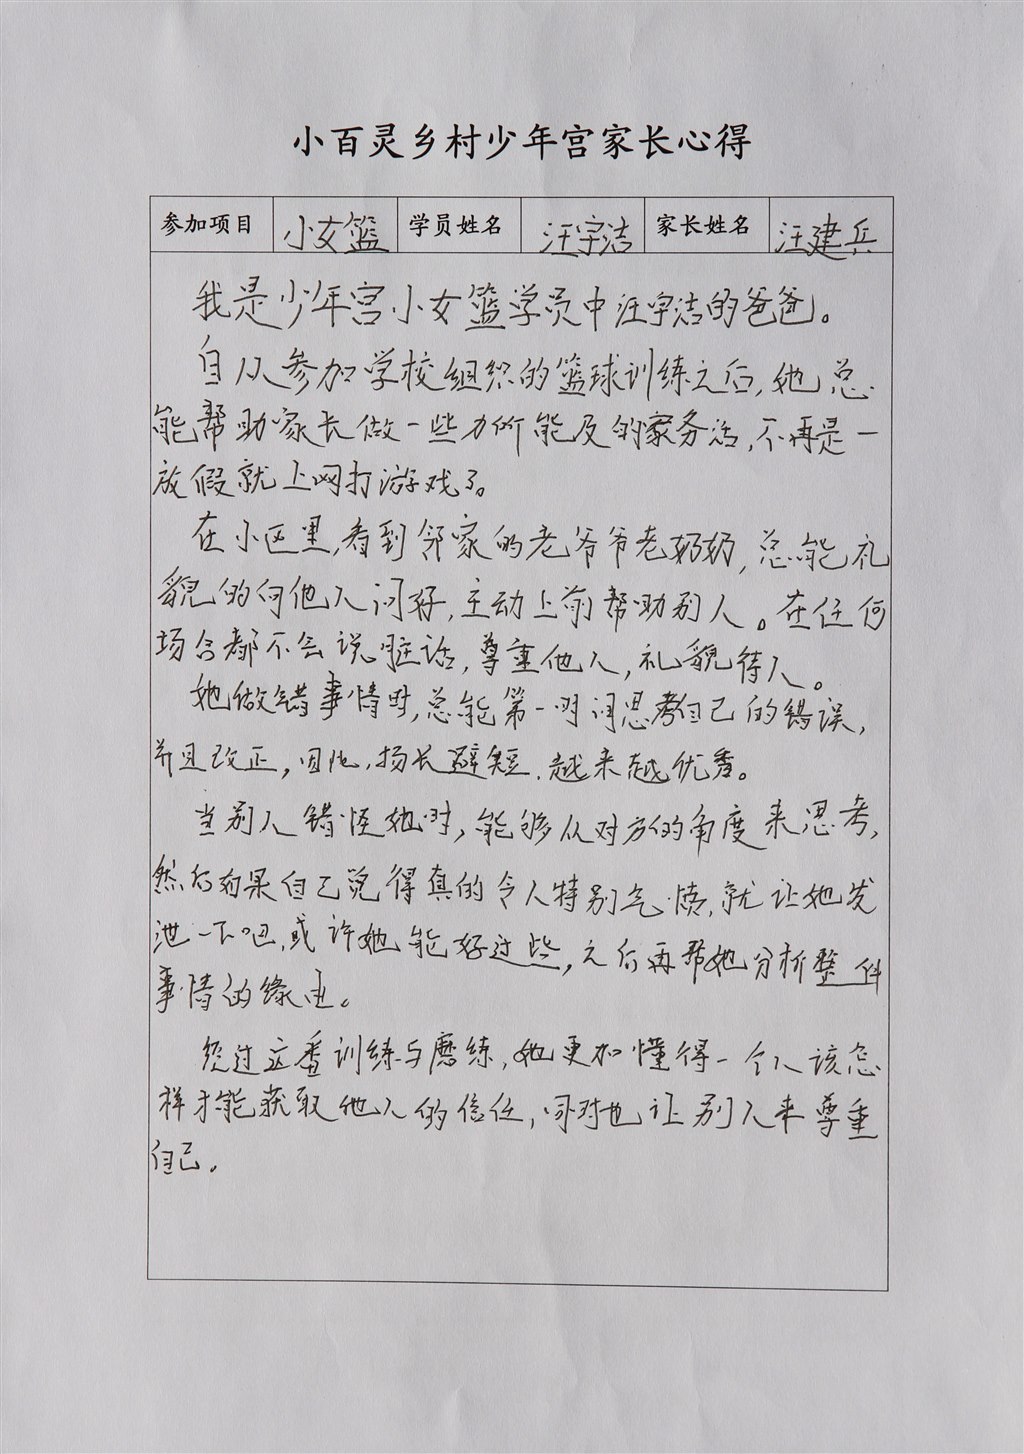 小百灵乡村少年宫家长心得
参加项目 小女篮 学员姓名 汪宇洁 家长姓名 汪建兵
我是少年宫小女篮学员中汪宇洁的爸爸。
自从参加学校组织的篮球训练之后,她总
能帮助家长做一些力所能及的家务活,不再是一
放假就上网打游戏了。
在小区里,看到邻家的老爷爷老奶奶,总能礼
貌的向他人问好,主动上前帮助别人。在任何
场合都不会说脏话,尊重他人,礼貌待人。
她做错事情时,总能第一时间思考自己的错误,
并且改正,因此,扬长避短,越来越优秀。
当别人错怪她时,能够从对方的角度来思考,
然后如果自己觉得真的令人特别气愤,就让她发
泄一下吧,或许她能好过些,之后再帮她分析整件
事情的缘由。
经过这番训练与磨练,她更加懂得一个人该怎
样才能获取他人的信任,同时也让别人来尊重
自己。